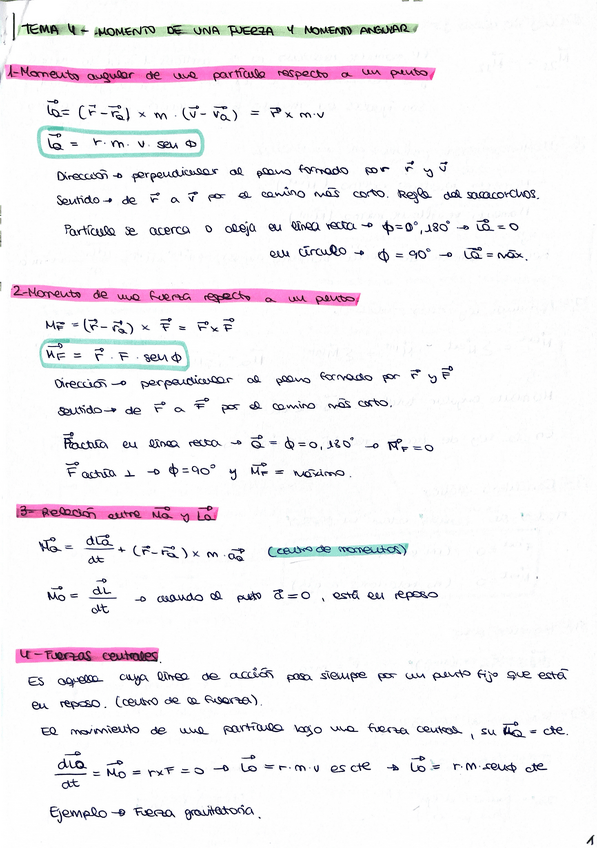 TEMA 4 - MOMENTO DE UNA FUERZA Y MOMENTO ANGULAR
1-Momento angular de una partícula respecto a un punto
L⃗a = (r⃗ - r⃗a) × m · (v⃗ - v⃗a) = r⃗ × m · v
L⃗a = r · m · v · sen ϕ
Dirección → perpendicular al plano formado por r⃗ y v⃗
Sentido → de r⃗ a v⃗ por el camino más corto. Regla del sacacorchos.
Partícula se acerca o aleja en línea recta → ϕ = 0°, 180° → L⃗a = 0
en círculo → ϕ = 90° → L⃗a = máx.
2-Momento de una fuerza respecto a un punto
MF = (r⃗ - r⃗a) × F⃗ = r⃗ × F⃗
M⃗F = r⃗ · F · sen ϕ
Dirección → perpendicular al plano formado por r⃗ y F⃗
sentido → de r⃗ a F⃗ por el camino más corto.
F⃗ actúa en línea recta → a⃗ = ϕ = 0, 180° → M⃗F = 0
F⃗ actúa ⊥ → ϕ = 90° y M⃗F = máximo.
3- Relación entre M⃗a y L⃗a
M⃗a = dL⃗a/dt + (r⃗ - r⃗a) × m · a⃗a (centro de momentos)
M⃗o = dL⃗/dt → cuando el punto a⃗ = 0, está en reposo
4- Fuerzas centrales.
Es aquella cuya línea de acción pasa siempre por un punto fijo que está
en reposo. (centro de la fuerza).
El movimiento de una partícula bajo una fuerza central, su = cte.
dL⃗a/dt = M⃗o = r×F = 0 → L⃗o = r · m · v es cte → L⃗o = r · m · senϕ cte
Ejemplo → Fuerza gravitatoria.
1